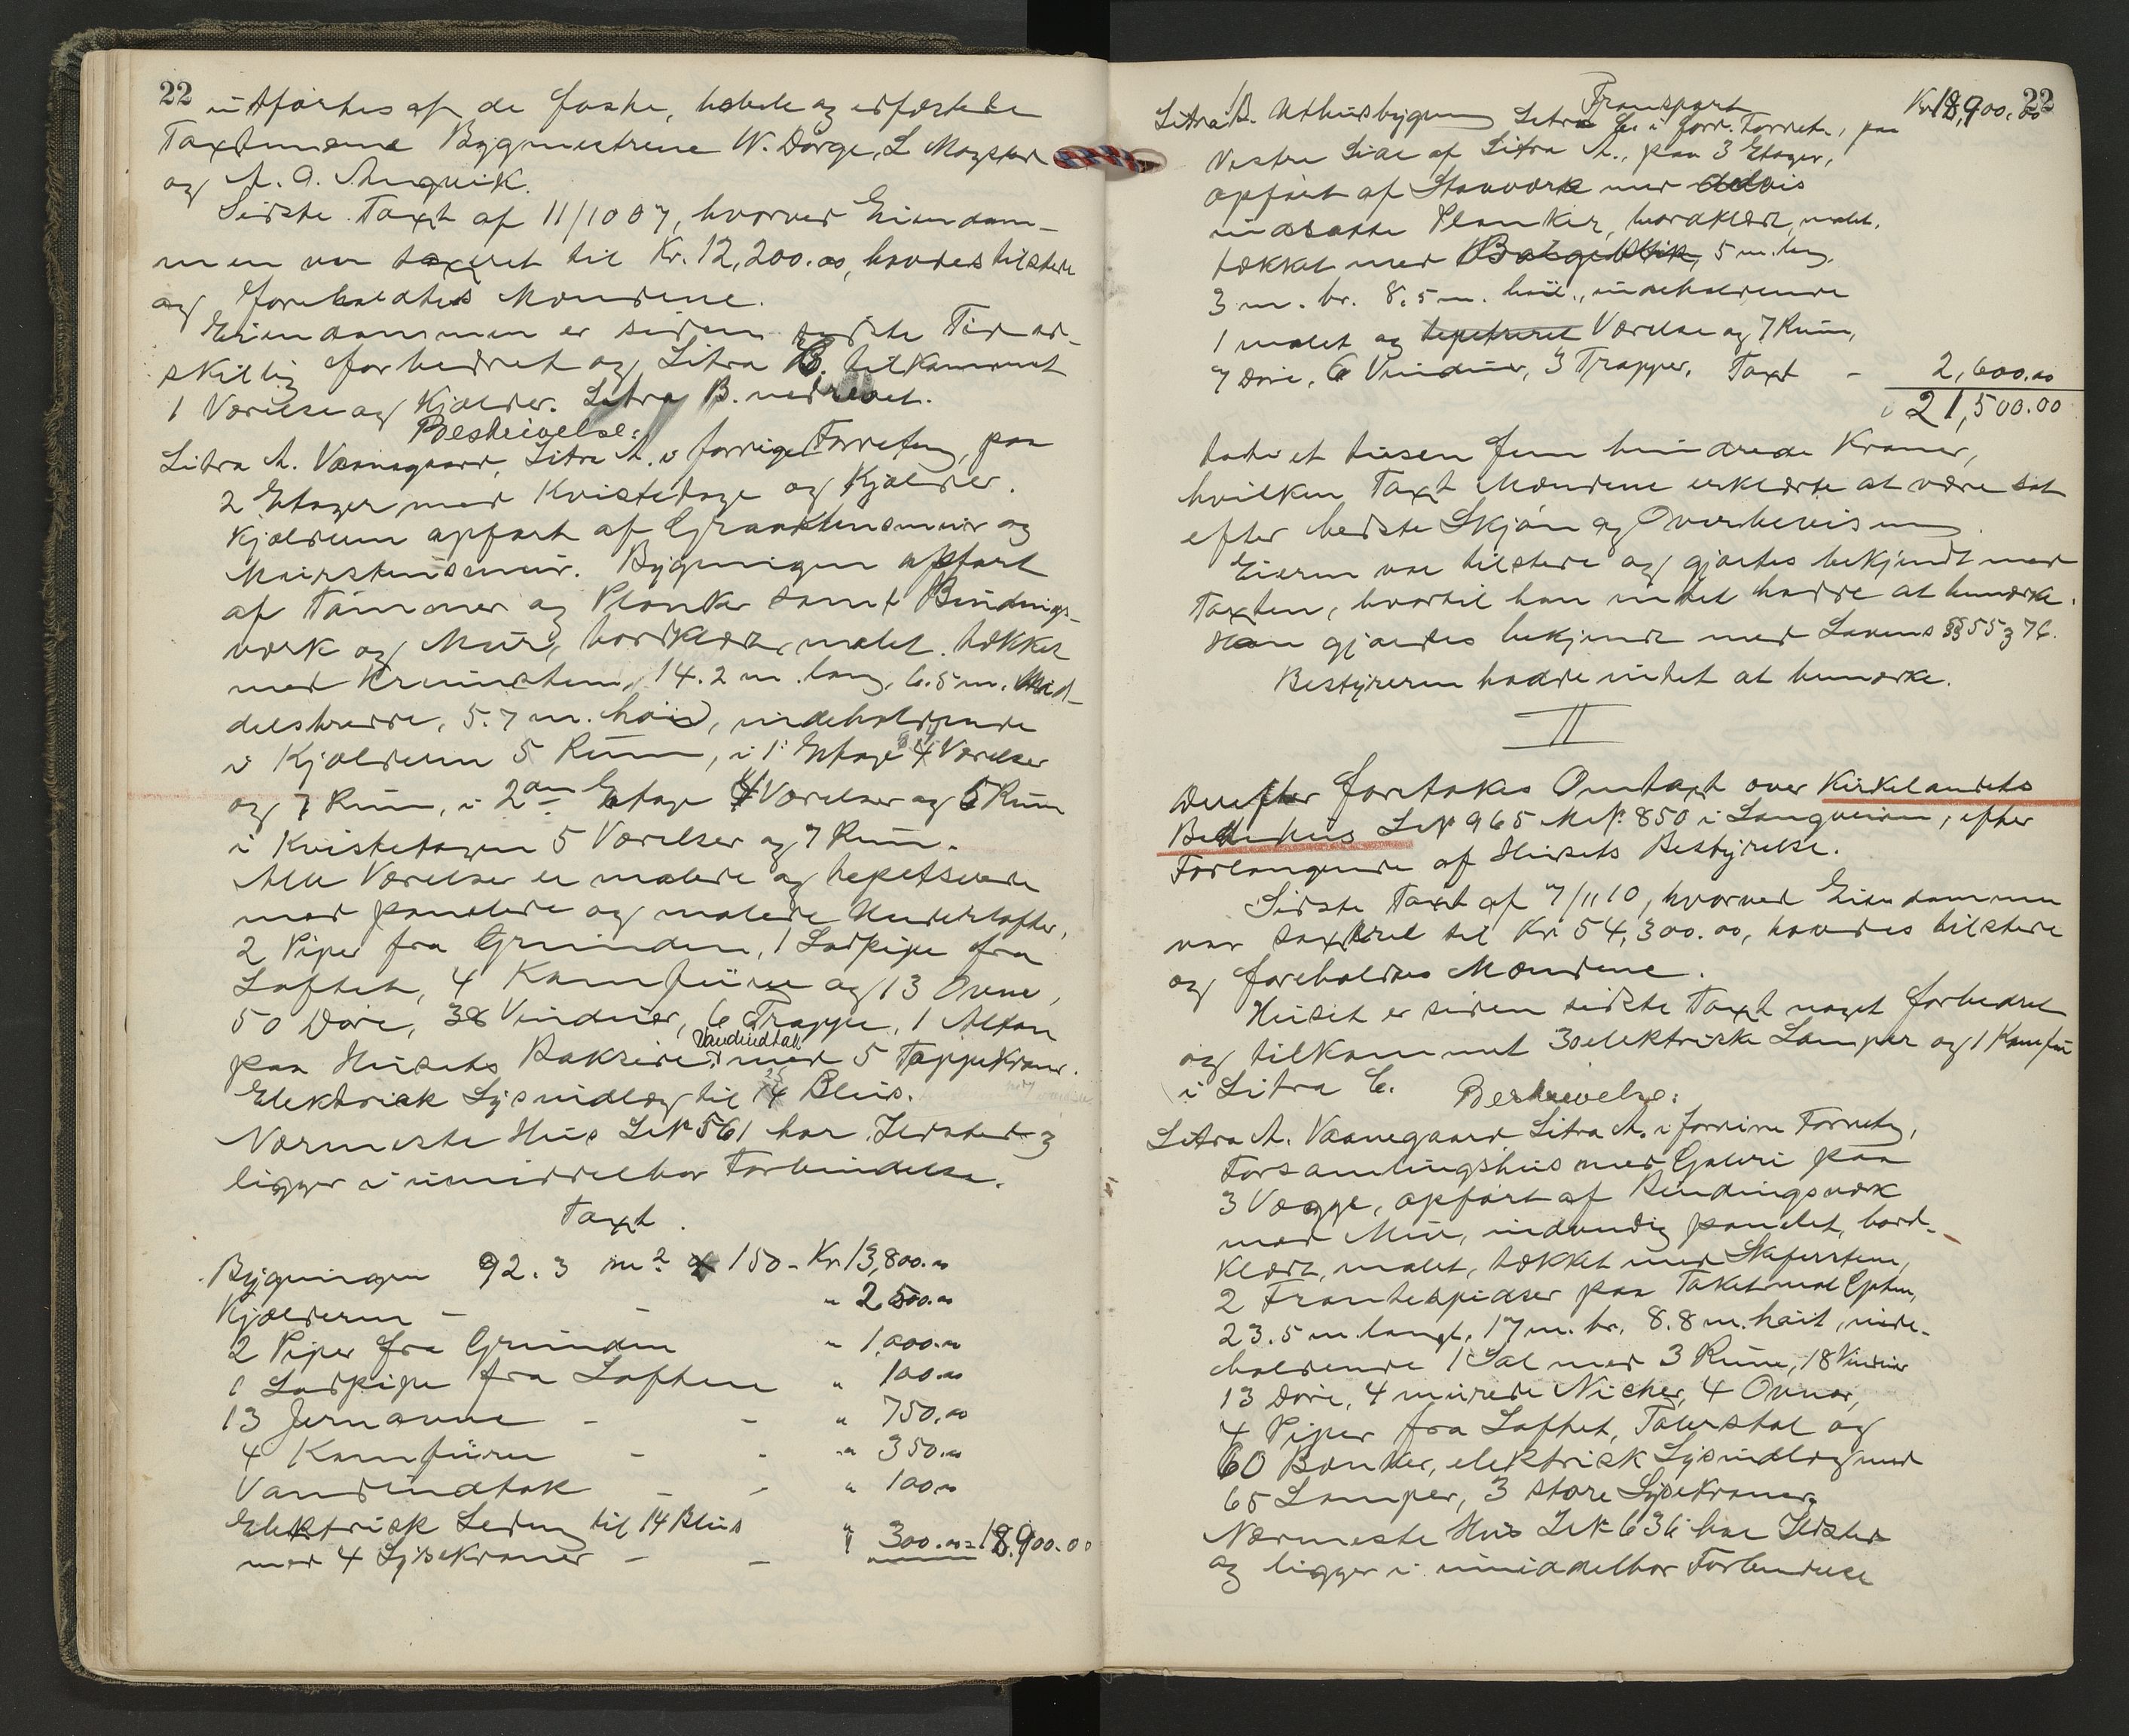 22
utførtes af de faste, hertil og edfæstede
Taxtmænd Bygmestrene W. Dørge, L Magstad
og A. O. Angvik.
Sidste Taxt af 11/10 07, hvorved Eiendom-
men var taxeret til Kr. 12,200.00, havdes tilstede
og foreholdtes Mændene.
Eiendommen er siden sidste Tid ad-
skillig forbedret og Litra B. tilkommet
1 Værelse og Kjælder. Litra B. nedrevet.
Beskrivelse:
Litra A. Vaanegaard, Litra A. i forrige Forretng, paa
2 Etager med Kvistetage og Kjælder.
Kjælderen opført af Graastensmur og
Murstensmur. Bygningen opført
af Tømmer og Planker samt Bindings-
værk og Mur, bordklædt, malet. tækket
med Krumsten, 14.2 m. lang, 6.5 m. Mid-
delsbredde, 5.7 m. høi, indeholdende
i Kjælderen 5 Rum, i 1ste Etage 4 Værelser
og 7 Rum, i 2den Etage 4 Værelser og 6 Rum
i Kvistetagen 5 Værelser og 7 Rum.
Alle Værelser er malede og tapetserede
med panelede og malede Underlofter,
2 Piper fra Grunden, 1 Ladpipe fra
Loftet, 4 Komfurer og 13 Ovne,
50 Døre, 38 Vinduer, 6 Trapper, 1 Altan
paa Husets Bakside. Vandindtak med 5 Tappekraner.
Elektrisk Lysindlæg til 14 Blus.
Nærmeste Hus LNr 561 har Ildsted og
ligger i umiddelbar Forbindelse.
Taxt.
Bygningen 92.3 m2 a 150 - Kr. 13,800.00
Kjælderen - - " 2,500.00
2 Piper fra Grunden " 1,000.00
1 Ladpipe fra Loftene " 100.00
13 Jernovne - - " 750.00
4 Komfurer - - " 350.00
Vandindtak - - " 100.00
Elektrisk Ledng til 14 Blus
med 4 Lysekroner - - " 300.00 = 18,900.00
22
Transport Kr 18,900.00
Litra B. Uthusbygning Litra C. i forr. Forretn., paa
Vestre Side af Litra A., paa 3 Etager,
opført af Stavværk med delvis
indsatte Planker, bordklædt, malet.
tækket med Bølgeblik, 5 m. lang,
3 m. br. 8.5 m. høi, indeholdende
1 malet og tapetseret Værelse og 7 Rum,
7 Døre, 6 Vinduer, 3 Trapper. Taxt - 2,600.00
21,500.00
tyve et tusen fem hundrede Kroner,
hvilken Taxt Mændene erklærte at være sat
efter bedste Skjøn og Overbevisning.
Eieren var tilstede og gjordes bekjendt med
Taxten, hvortil han intet hadde at bemærke.
Han gjordes bekjendt med Lovens §§ 55 og 76.
Bestyreren hadde intet at bemærke.
II
Derefter foretokes Omtaxt over Kirkelandets
Bedehus LNr 965 MNr. 850 i Langveien, efter
Forlangende af Husets Bestyrelse.
Sidste Taxt af 7/11 10, hvorved Eiendommen
var taxeret til Kr 54,300.00, havdes tilstede
og foreholdtes Mændene.
Huset er siden sidste Taxt noget forbedret
og tilkommet 30 elektriske Lamper og 1 Komfur
i Litra C. Beskrivelse:
Litra A. Vaanegaard Litra A. i forrige Forretng,
Forsamlingshus med Galeri paa
3 Vægge, opført af Bindingsværk
med Mur, indvendig panelet, bord-
klædt, malet, tækket med Skifersten,
2 Frontespidser paa Taket mod Gaten,
23.5 m. langt, 17 m. br. 8.8 m. høit, inde-
holdende 1 Sal med 3 Rum, 18 Vinduer
13 Døre, 4 murede Nicher, 4 Ovner,
4 Piper fra Loftet, Talerstol og
60 Bænker, elektrisk Lysindlæg med
65 Lamper, 3 store Lysekroner.
Nærmeste Hus LNr 636 har Ildsted
og ligger i umiddelbar Forbindelse